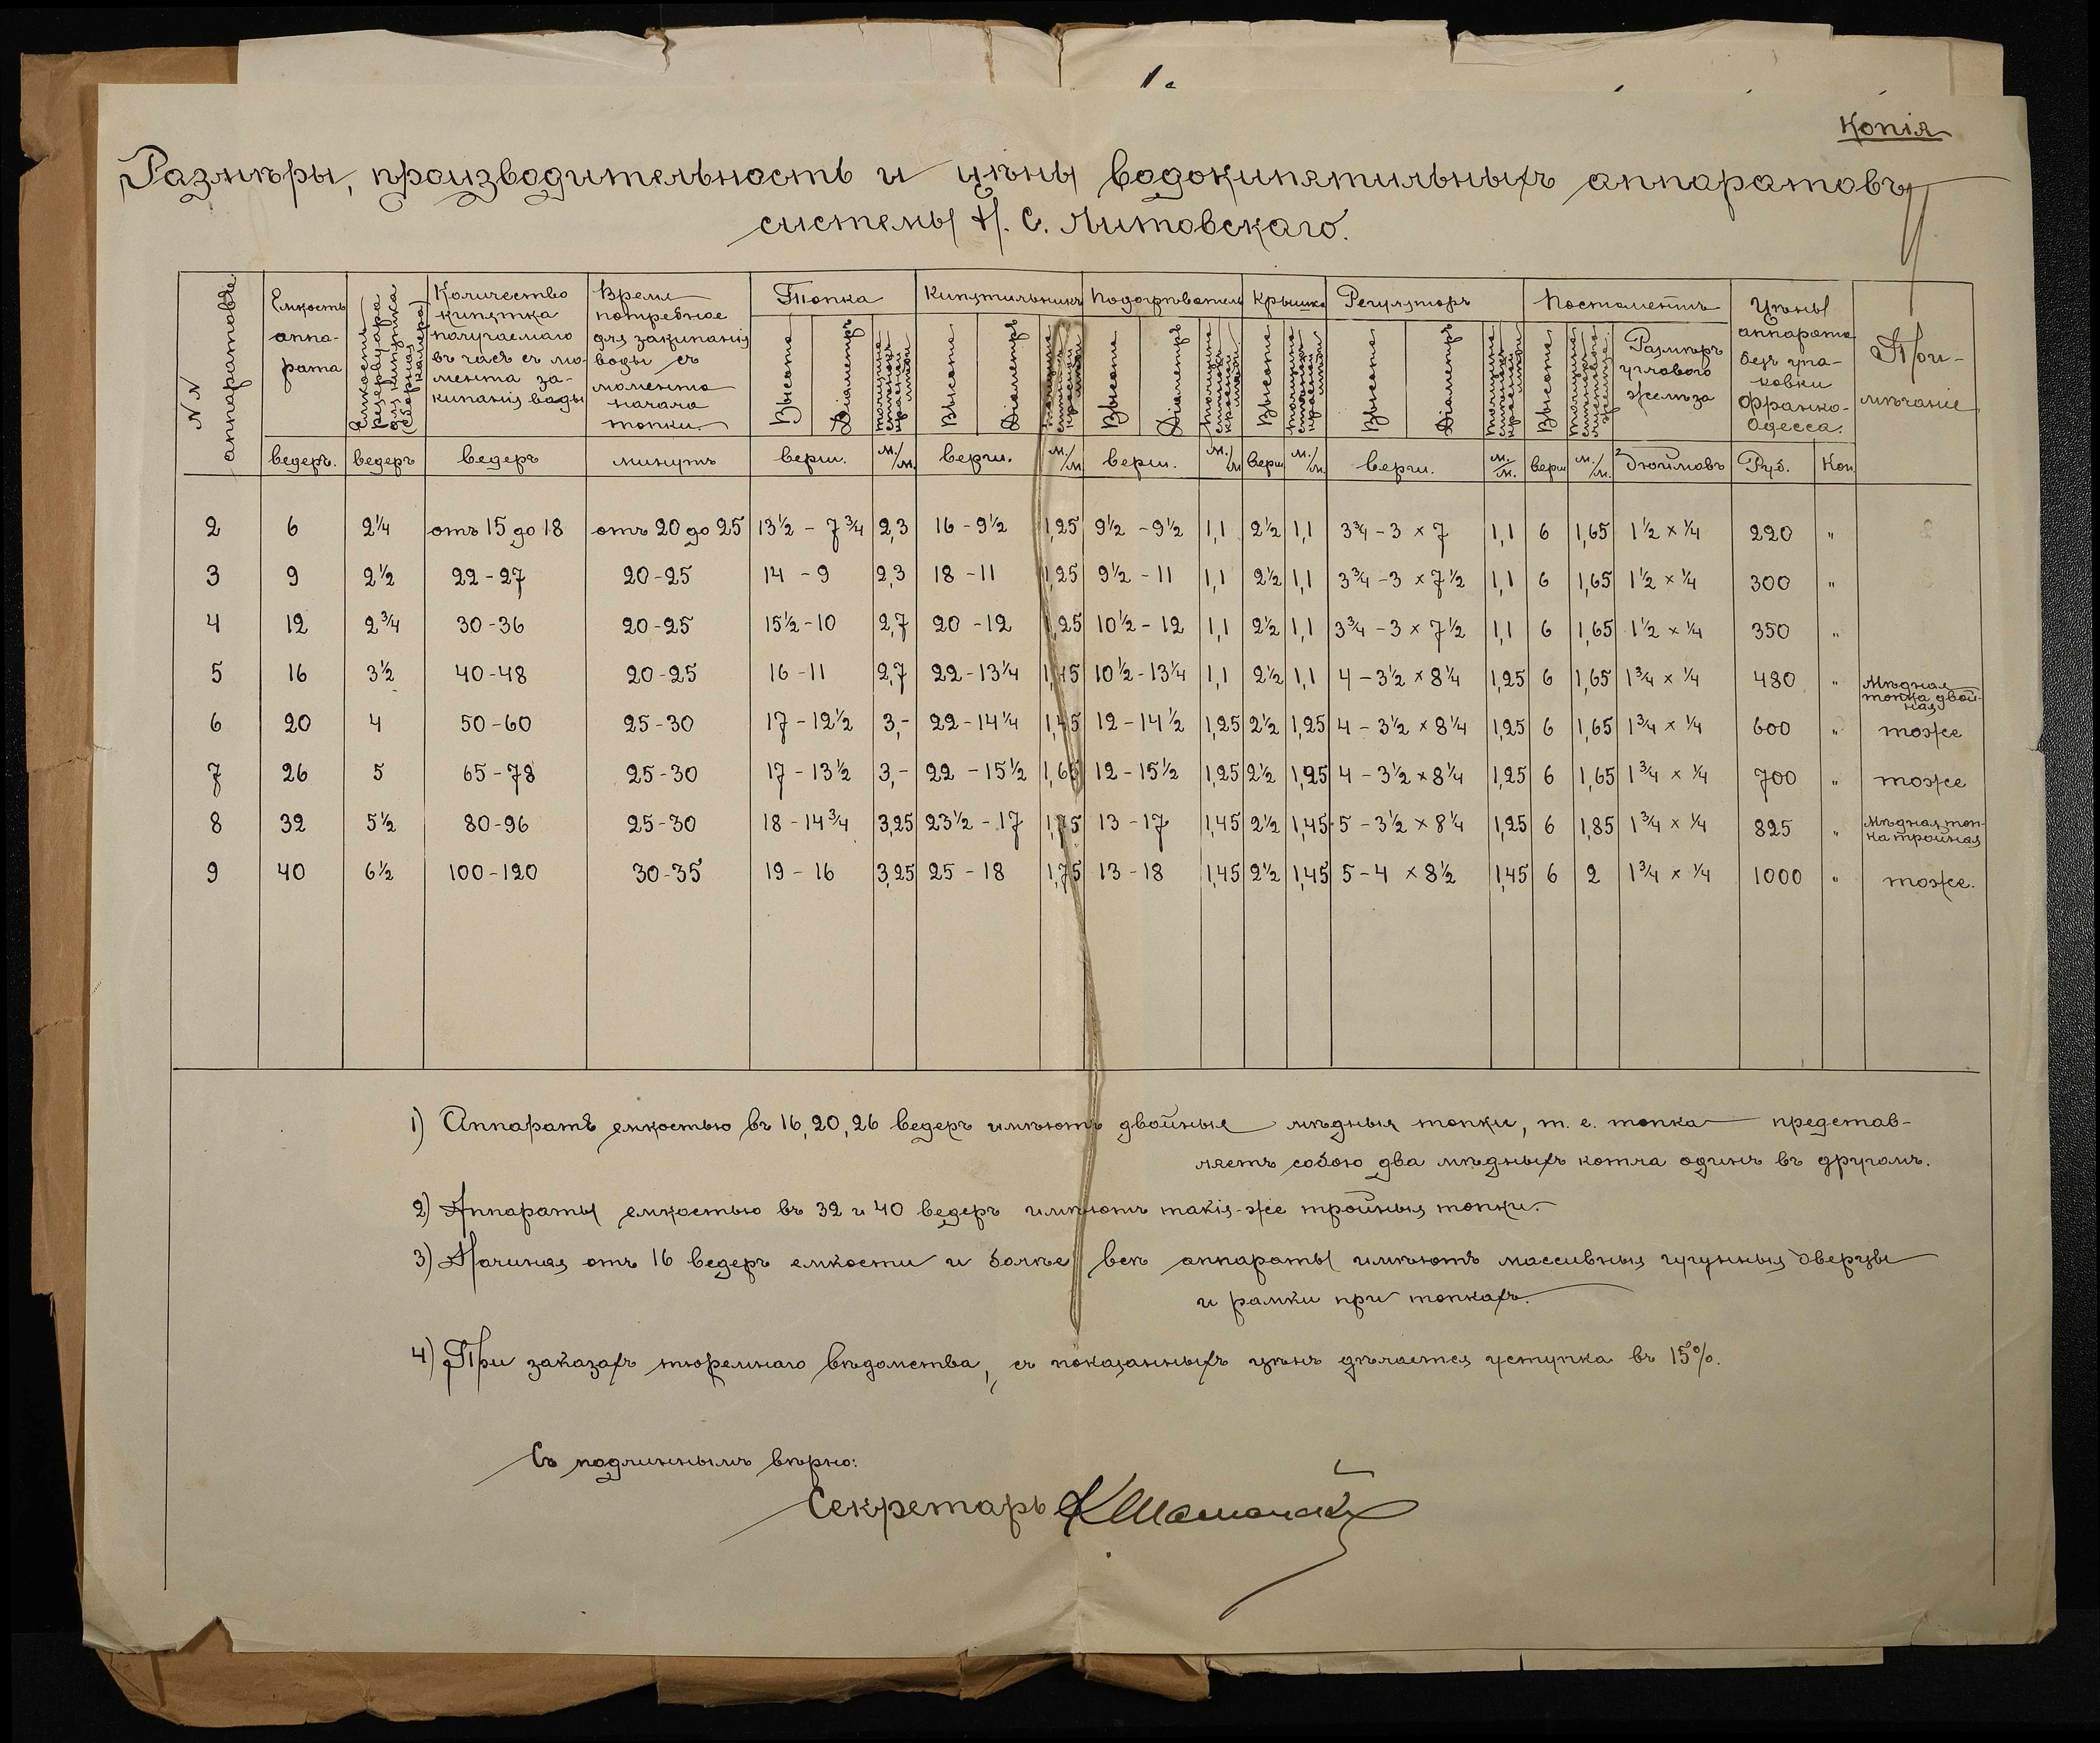 Копія
Размѣры, производительность и цѣны водокипятильныхъ аппаратовъ
системы Н. С. Литовскаго.
N N аппаратовъ.
Емкость аппа- рата
Емкость резервуара для кипятка (сборная камера)
Количество кипятка получаемаго въ часъ съ мо- мента за- кипанія воды
Время потребное для закипанія воды съ момента начала топки.
Топка
Кипятильникъ
Подогрѣватель
Крышка
Регуляторъ
Постаментъ
Цѣны аппарата безъ упа- ковки франко- Одесса.
При- мѣчаніе
Высота Діаметръ Толщина стѣнокъ красной мѣди
Высота Діаметръ Толщина стѣнокъ красной мѣди
Высота Діаметръ Толщина стѣнокъ красной мѣди
Высота Толщина стѣнокъ красной мѣди
Высота Діаметръ Толщина стѣнокъ красной мѣди
Высота Толщина желѣза Размѣръ углового желѣза
ведеръ. ведеръ ведеръ минутъ верш. м./м. верш. м./м верш. м./м верш м./м. верш. м./м. верш м./м. дюймовъ Руб. Коп
2 6 2¼ отъ 15 до 18 отъ 20 до 25 13½ - 7¾ 2,3 16 - 9½ 1,25 9½ - 9½ 1,1 2½ 1,1 3¾ - 3 × 7 1,1 6 1,65 1½ × ¼ 220 "
3 9 2½ 22 - 27 20-25 14 - 9 2,3 18 - 11 1,25 9½ - 11 1,1 2½ 1,1 3¾ - 3 × 7½ 1,1 6 1,65 1½ × ¼ 300 "
4 12 2¾ 30-36 20-25 15½-10 2,7 20 - 12 1,25 10½ - 12 1,1 2½ 1,1 3¾ - 3 × 7½ 1,1 6 1,65 1½ × ¼ 350 "
5 16 3½ 40-48 20-25 16 - 11 2,7 22-13¼ 1,45 10½-13¼ 1,1 2½ 1,1 4 - 3½ × 8¼ 1,25 6 1,65 1¾ × ¼ 480 " Мѣдная топка двой- ная
6 20 4 50-60 25-30 17 - 12½ 3,- 22-14¼ 1,45 12 - 14½ 1,25 2½ 1,25 4 - 3½ × 8¼ 1,25 6 1,65 1¾ × ¼ 600 " тоже
7 26 5 65-78 25-30 17 - 13½ 3,- 22 - 15½ 1,65 12 - 15½ 1,25 2½ 1,25 4 - 3½ × 8¼ 1,25 6 1,65 1¾ × ¼ 700 " тоже
8 32 5½ 80-96 25-30 18 - 14¾ 3,25 23½ - 17 1,75 13 - 17 1,45 2½ 1,45 5 - 3½ × 8¼ 1,25 6 1,85 1¾ × ¼ 825 " Мѣдная топ- ка тройная
9 40 6½ 100-120 30-35 19 - 16 3,25 25 - 18 1,75 13 - 18 1,45 2½ 1,45 5 - 4 × 8½ 1,45 6 2 1¾ × ¼ 1000 " тоже.
1) Аппаратъ емкостью въ 16, 20, 26 ведеръ имѣютъ двойныя мѣдныя топки, т. е. топка представ-
ляетъ собою два мѣдныхъ котла одинъ въ другомъ.
2) Аппараты емкостью въ 32 и 40 ведеръ имѣютъ такія-же тройныя топки.
3) Начиная отъ 16 ведеръ емкости и болѣе всѣ аппараты имѣютъ массивныя чугунныя дверцы
и рамки при топкахъ.
4) При заказахъ тюремнаго вѣдомства, съ показанныхъ цѣнъ дѣлается уступка въ 15%.
Съ подлиннымъ вѣрно:
Секретарь